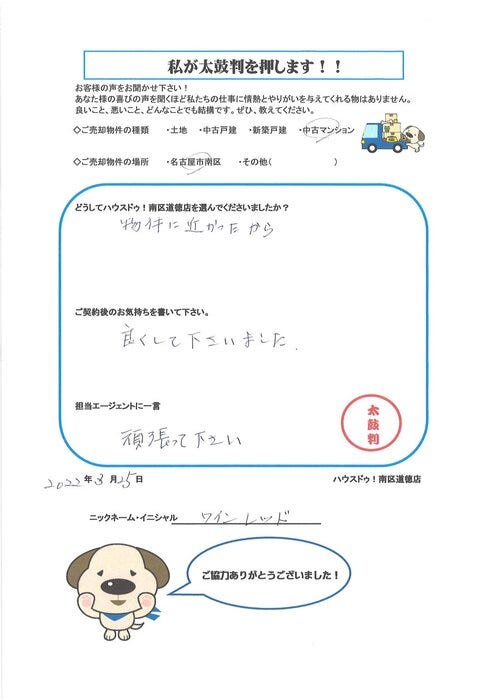 私が太鼓判を押します！！
お客様の声をお聞かせ下さい！
あなた様の喜びの声を聞くほど私たちの仕事に情熱とやりがいを与えてくれる物はありません。
良いこと、悪いこと、どんなことでも結構です。ぜひ、教えてください。
◇ご売却物件の種類 ・土地 ・中古戸建 ・新築戸建 ・中古マンション
◇ご売却物件の場所 ・名古屋市南区 ・その他（ ）
どうしてハウスドゥ！南区道徳店を選んでくださいましたか？
物件に近かったから
ご契約後のお気持ちを書いて下さい。
良くして下さいました.
担当エージェントに一言
頑張って下さい
太鼓判
2022年3月25日
ハウスドゥ！南区道徳店
ニックネーム・イニシャル ワインレッド
ご協力ありがとうございました！